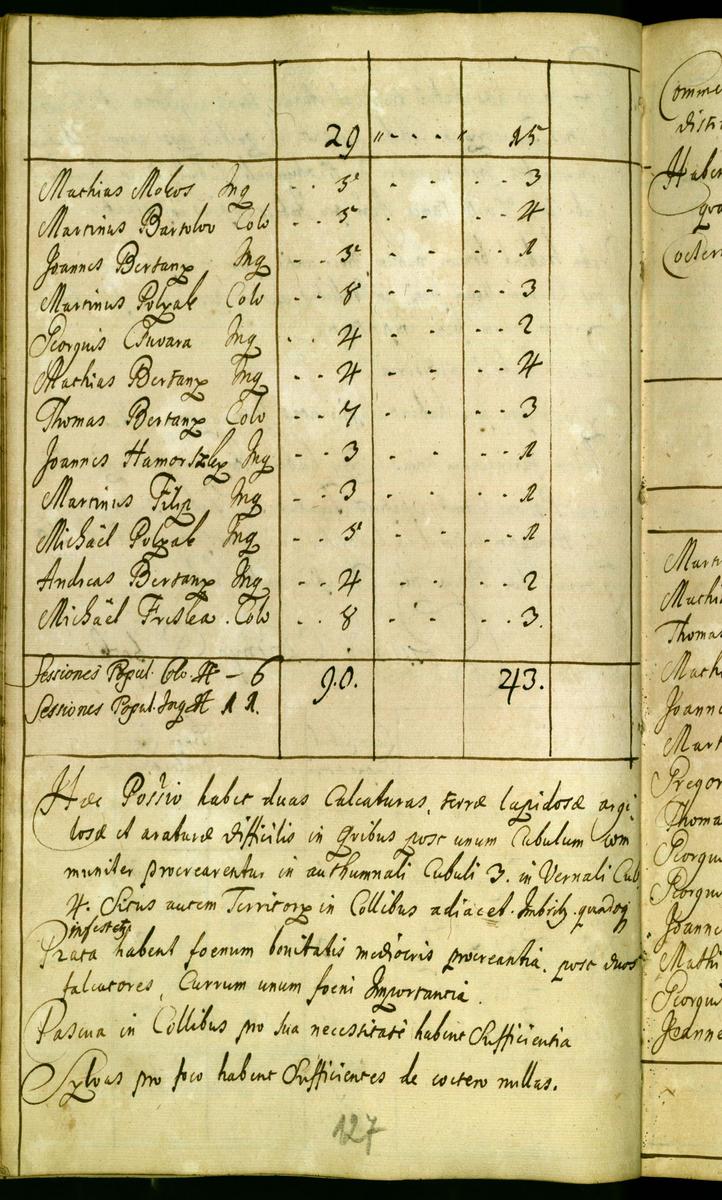 29 " - - - " 15
Mathias Mokos Inq - - 5 - - 3
Martinus Bartolov Colo - - 5 - - - 4
Joannes Bertany Inq - - 5 - - - - 1
Martinus Polyak Colo - - 8 - - - - 3
Georguis Čsuvara Inq - - 4 - - - - 2
Mathias Bertany Inq - - 4 - - - - 4
Thomas Bertany Colo - - 7 - - - - 3
Joannes Hamorszky Inq - - 3 - - - - 1
Martinus Filip Inq - - 3 - - - - 1
Michaël Polyak Inq - - 5 - - - - 1
Andreas Bertany Inq - - 4 - - - - 2
Michaël Freslea Colo - - 8 - - - - 3.
Sessiones Popul. Colo # - 6 90. 243.
Sessiones Popul. Inq # 11.
Hæc Possio habet duas Calcaturas, terræ lapidosæ argi
losæ et araturæ difficilis in quibus post unum Cubulum Com
muniter procrearentur in authumnali Cubuli 3. in Vernali Cub
4. Situs autem Territory in Collibus adiacet. Imbrib. quandoq
infestatq
Prata habent foenum bonitatis mediocris procreantia, post duos
falcatores, Currum unum foeni Importantia.
Pascua in Collibus pro sua necessitate habent Sufficientia
Sylvas pro foco habent Sufficientes de coetero nullas.
127
Comme
distr
Haben
quo
Coeter
Marti
Mathi
Thomas
Math
Joann
Mart
Gregor
Thoma
Georgui
Georgui
Joanne
Mathi
Georgui
Joanne